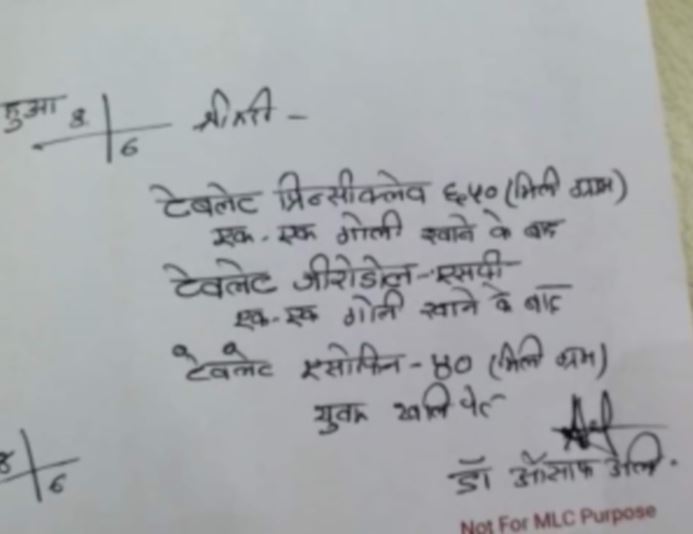 हुआ 8 6 श्रीमती -
टेबलेट प्रिन्सीक्लेव ६५० (मिली ग्राम)
एक-एक गोली खाने के बाद
टेवलेट जीरोडोल-एसपी
एक-एक गोली खाने के बाद
टेवलेट एसोफिन-४० (मिली ग्राम)
खाली पेट
8 6
डॉ ऑसाफ अली.
Not For MLC Purpose